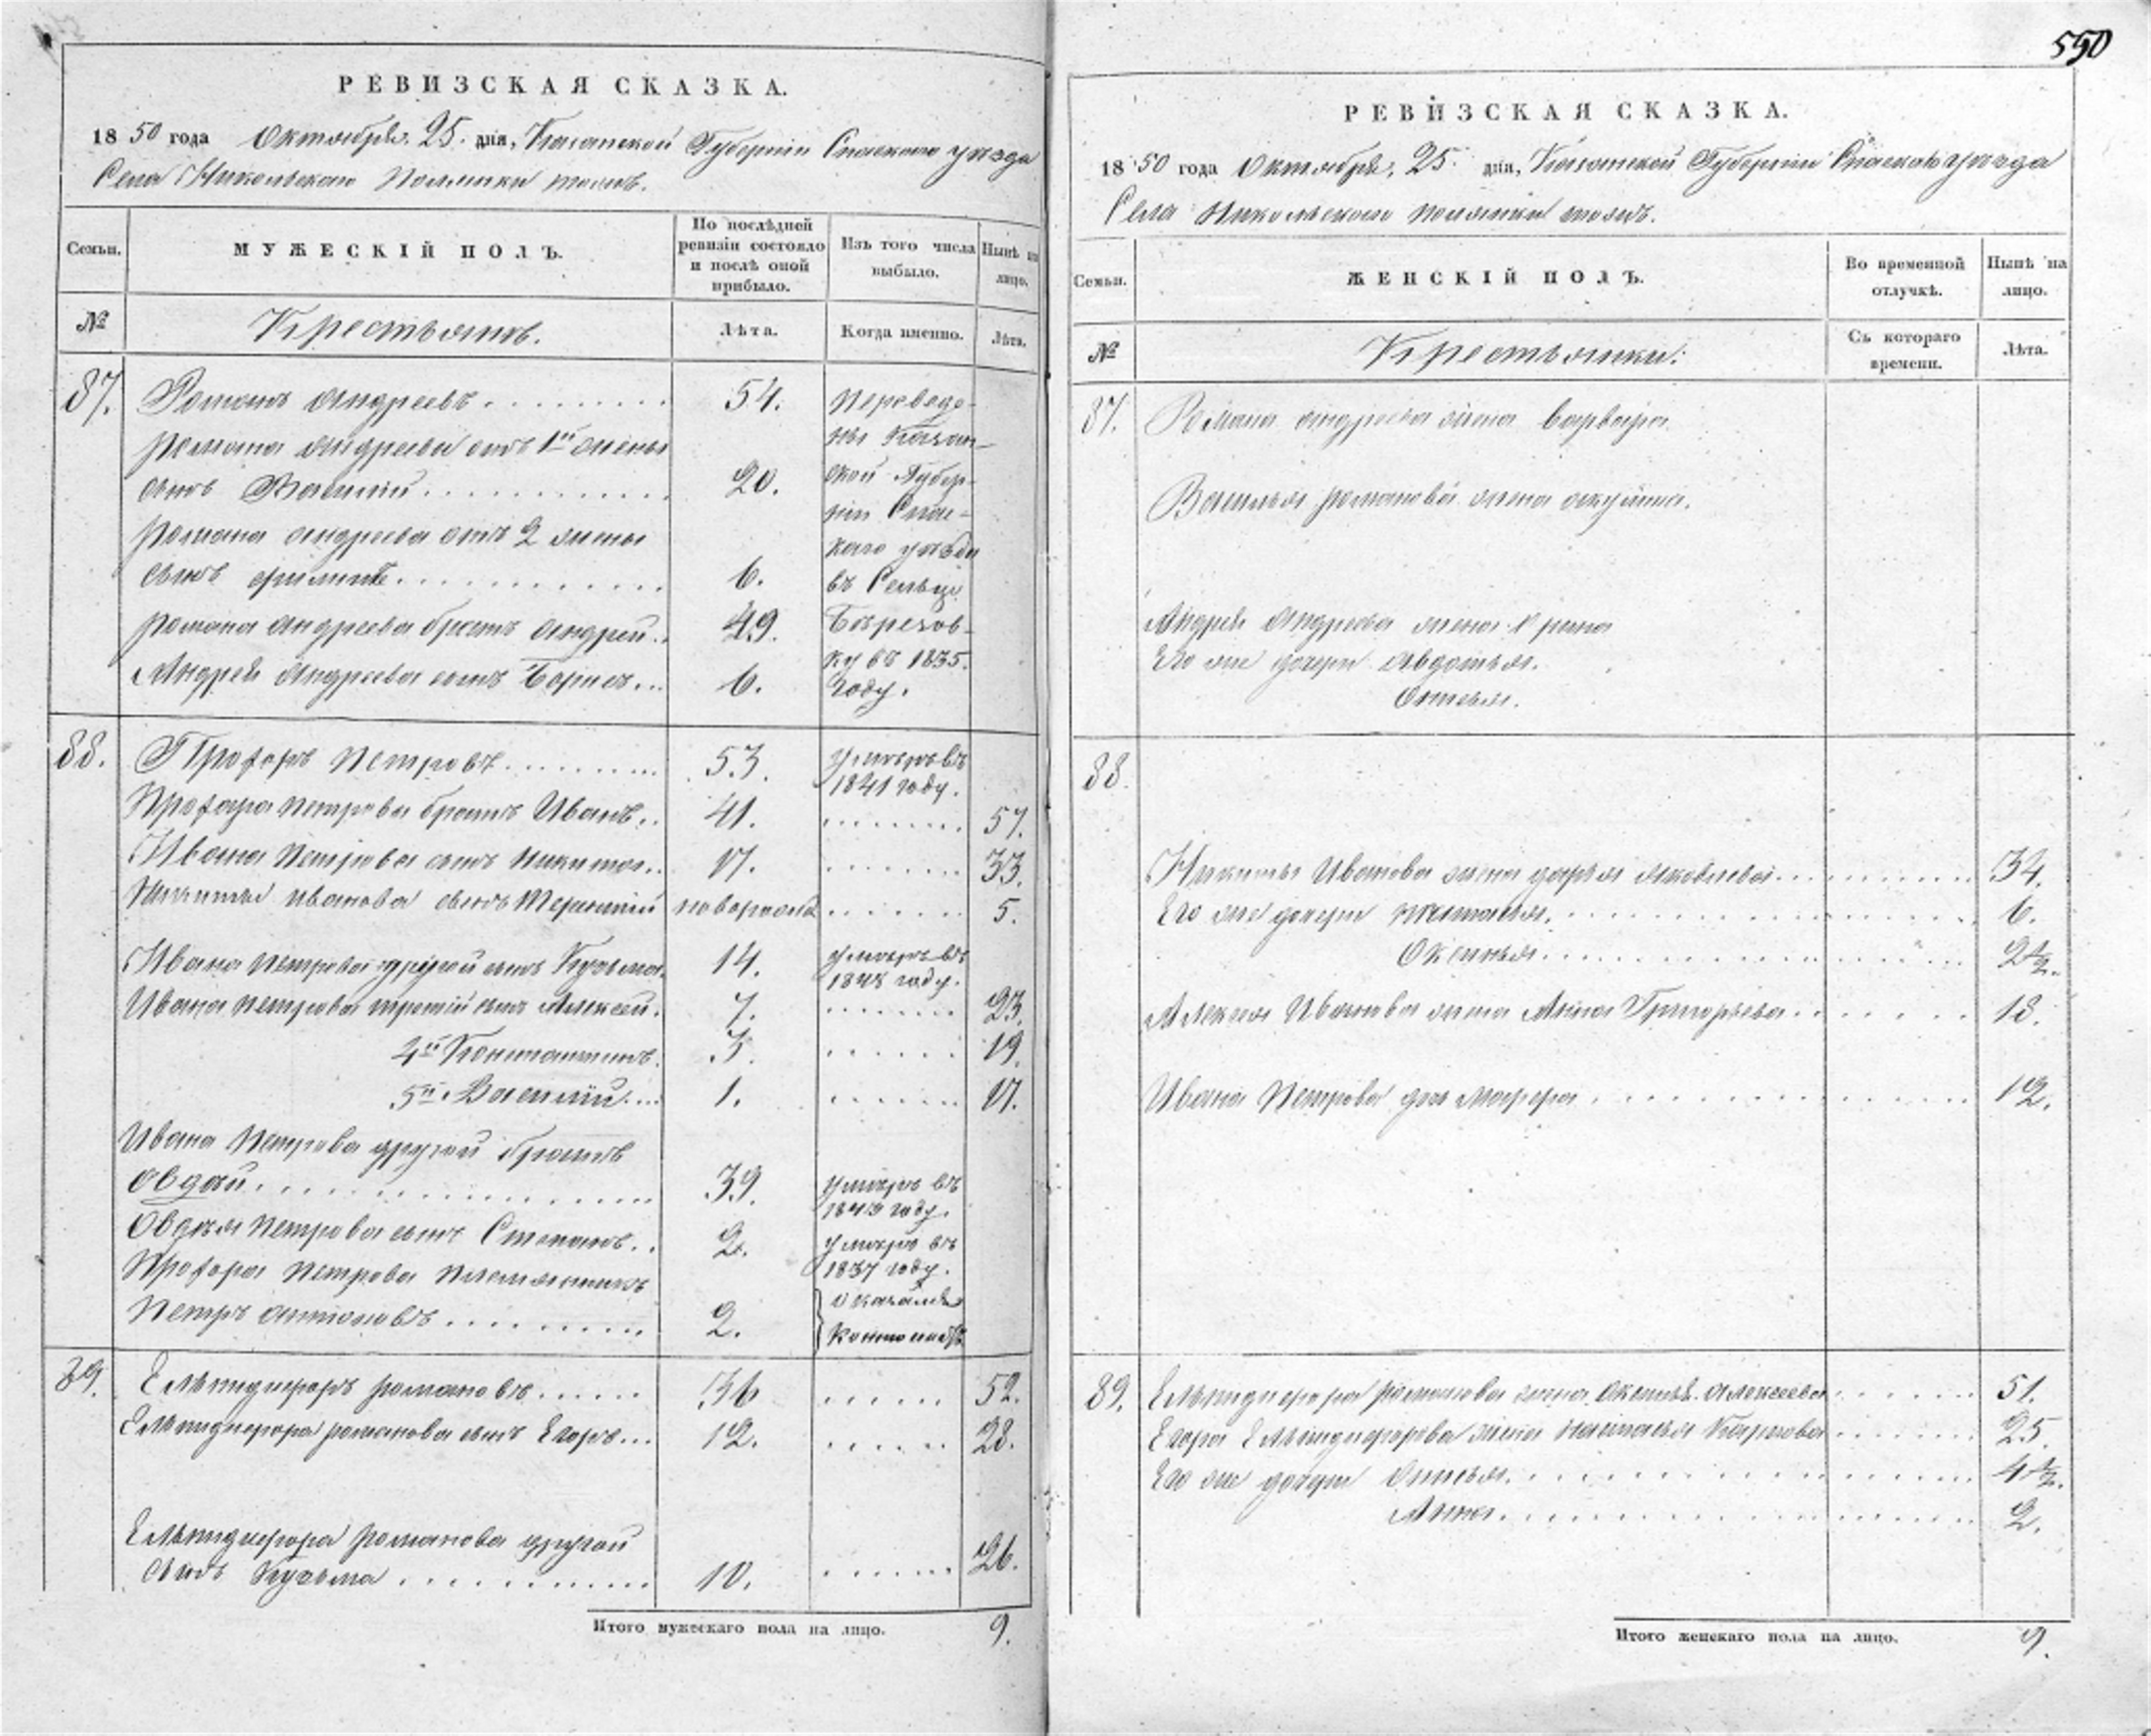 550
РЕВИЗСКАЯ СКАЗКА.
1850 года Октября 25. дня, Казанской Губернии Спаскаго уезда
Села Никольскаго Полянки тожъ.
Семьи.
МУЖЕСКІЙ ПОЛЪ.
По послѣдней ревизіи состояло и послѣ оной прибыло.
Изъ того числа выбыло.
Нынѣ на лицо.
№
Крестьянъ.
Лѣта.
Когда именно.
Лѣта.
87. Романъ Андреевъ 54. Переведе-
Романа Андреева отъ 1й жены ны Казан-
сынъ Василий 20. ской Губер-
нии Спас-
Романа Андреева отъ 2 жены каго уѣзда
сынъ Филипъ 6. въ Сельцо
Романа Андреева братъ Андрей 49. Березов-
ку въ 1835.
Андрея Андреева сынъ Борисъ 6. году.
88. Профоръ Петровъ 53. умеръ въ
1841 году.
Профора Петрова братъ Иванъ 41. 57.
Ивана Петрова сынъ Никита 17. 33.
Никиты Иванова сынъ новорожд. 5.
Ивана Петрова другой сынъ Кузьма 14. умеръ въ
1848 году.
Ивана Петрова третій сынъ Алексей 7. 23.
4й Константинъ 3. 19.
5й Василий 1. 17.
Ивана Петрова другой братъ
Овдей 39. умеръ въ
1849 году.
Овдея Петрова сынъ Степанъ 2. умеръ въ
1837 году.
Профора Петрова племянникъ
Петръ Антоновъ 2.
89. Ельпидифоръ Романовъ 36 52.
Ельпидифора Романова сынъ Егоръ 12. 28.
Ельпидифора Романова другой
сынъ Кузьма 10. 26.
Итого мужескаго пола на лицо. 9.
РЕВИЗСКАЯ СКАЗКА.
1850 года Октября, 25 дня, Казанской Губернии Спаскаго уезда
Села Никольскаго Полянки тожъ.
Семьи.
ЖЕНСКІЙ ПОЛЪ.
Во временной отлучкѣ.
Нынѣ на лицо.
№
Крестьянки:
Съ котораго времени.
Лѣта.
87. Романа Андреева жена Варвара
Василья Романова жена Акулина.
Андрея Андреева жена Ирина
Его же дочери Авдотья.
88.
Никиты Иванова жена Дарья Яковлева 34.
Его же дочери Наталья 6.
Оксинья 2½.
Алексея Иванова жена Анна Григорьева 18.
Ивана Петрова дочь Марфа 12.
89. Ельпидифора Романова жена Алексеева 51.
Егора Ельпидифорова жена Наталья Карпова 25
Его же дочери 4½.
Анна 2.
Итого женскаго пола на лицо. 9.